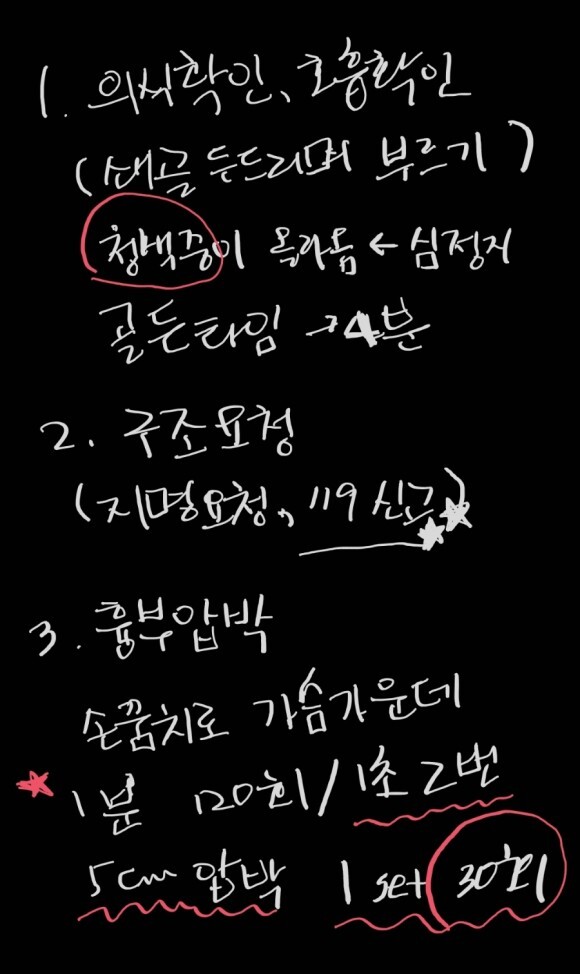 1. 의식확인, 호흡확인
(쇄골 두드리며 부르기)
청백증이 올라옴 ← 심정지
골든타임 → 4분
2. 구조요청
(지명요청, 119 신고)
3. 흉부압박
손꿈치로 가슴가운데
1분 120회/1초 2번
5cm 압박 1 set 30회